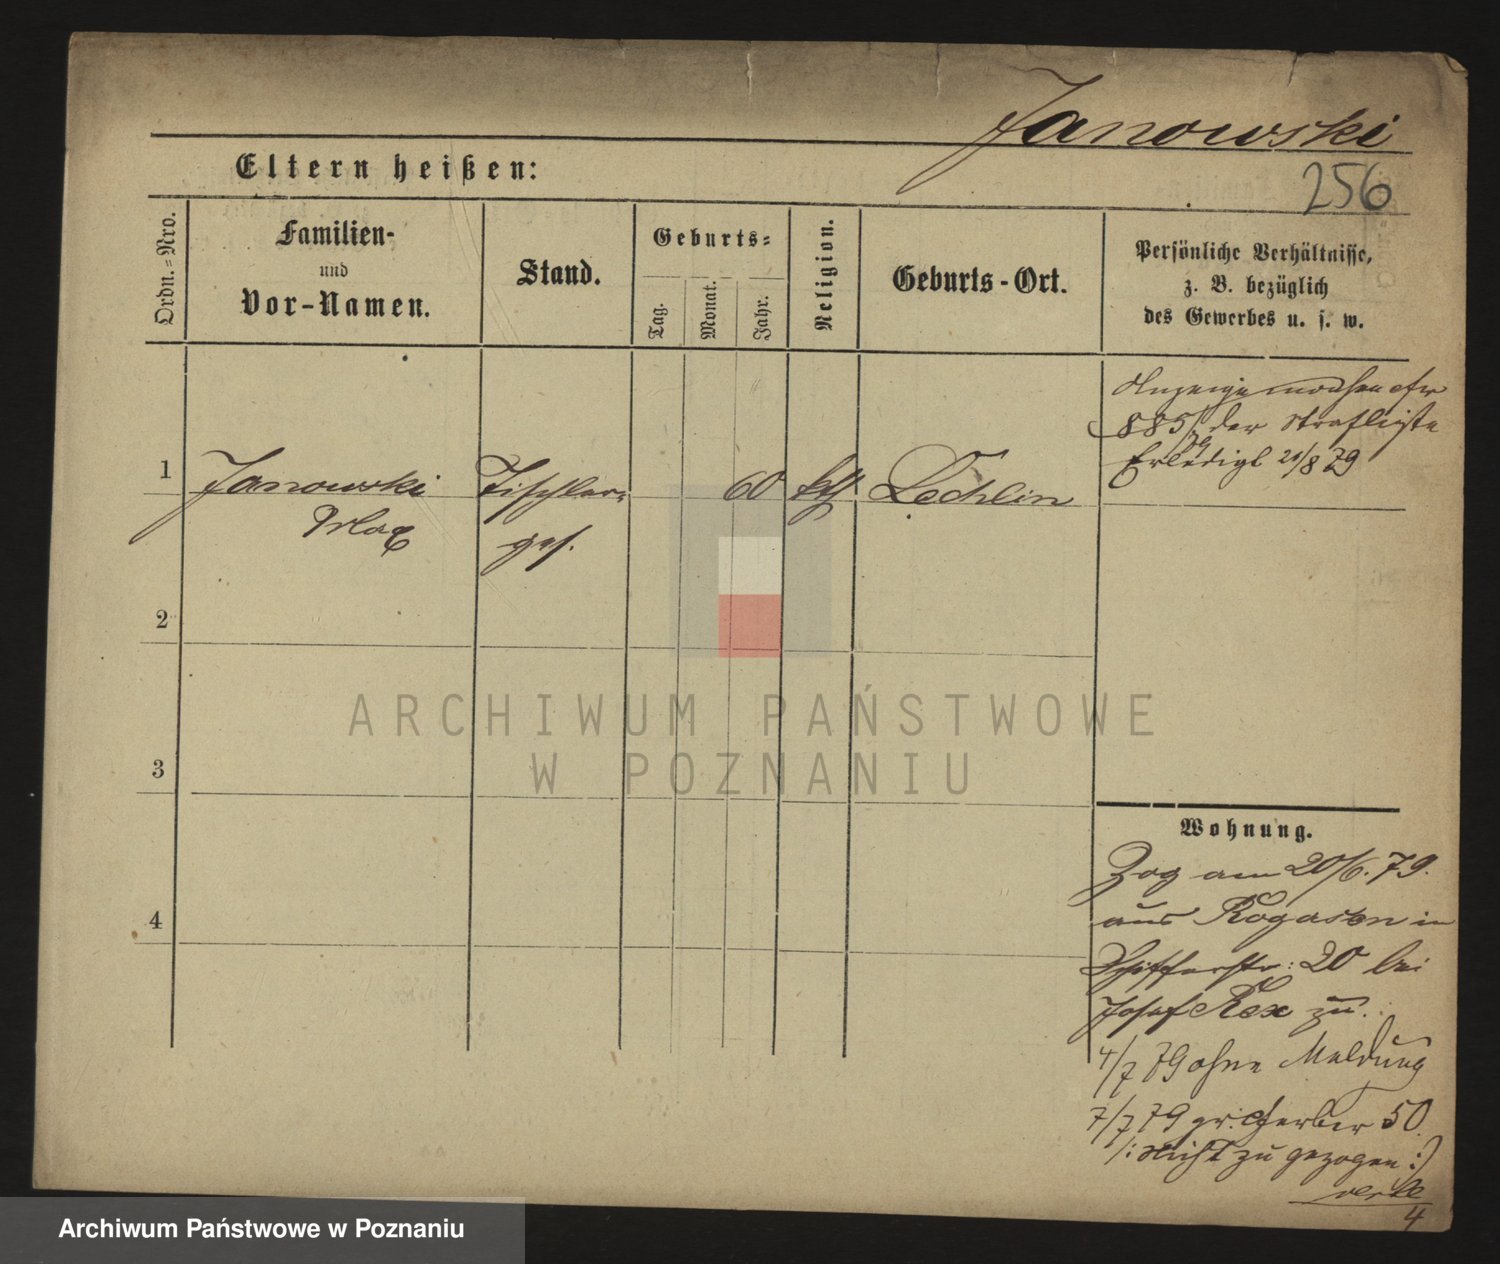 Janowski
256
Eltern heißen:
Ordn.=Nro.
Familien-
und
Vor-Namen.
Stand.
Geburts=
Tag.
Monat.
Jahr.
Religion.
Geburts-Ort.
Persönliche Verhältnisse,
z. B. bezüglich
des Gewerbes u. s. w.
Anzeige machen
885/79 der Strafliste
Erledigt 21/8 79
1
Janowski
Max
Tischler=
ges.
60
kth
Lechlin
2
3
4
ARCHIWUM PAŃSTWOWE
W POZNANIU
Wohnung.
Zog am 20/6. 79.
aus Rogasen in
Schifferstr: 20 bei
Josef Rex zu.
4/7 79 ohne Meldung
7/7 79 gr: Gerber 50
/: Nicht zu gezogen :/
4
Archiwum Państwowe w Poznaniu